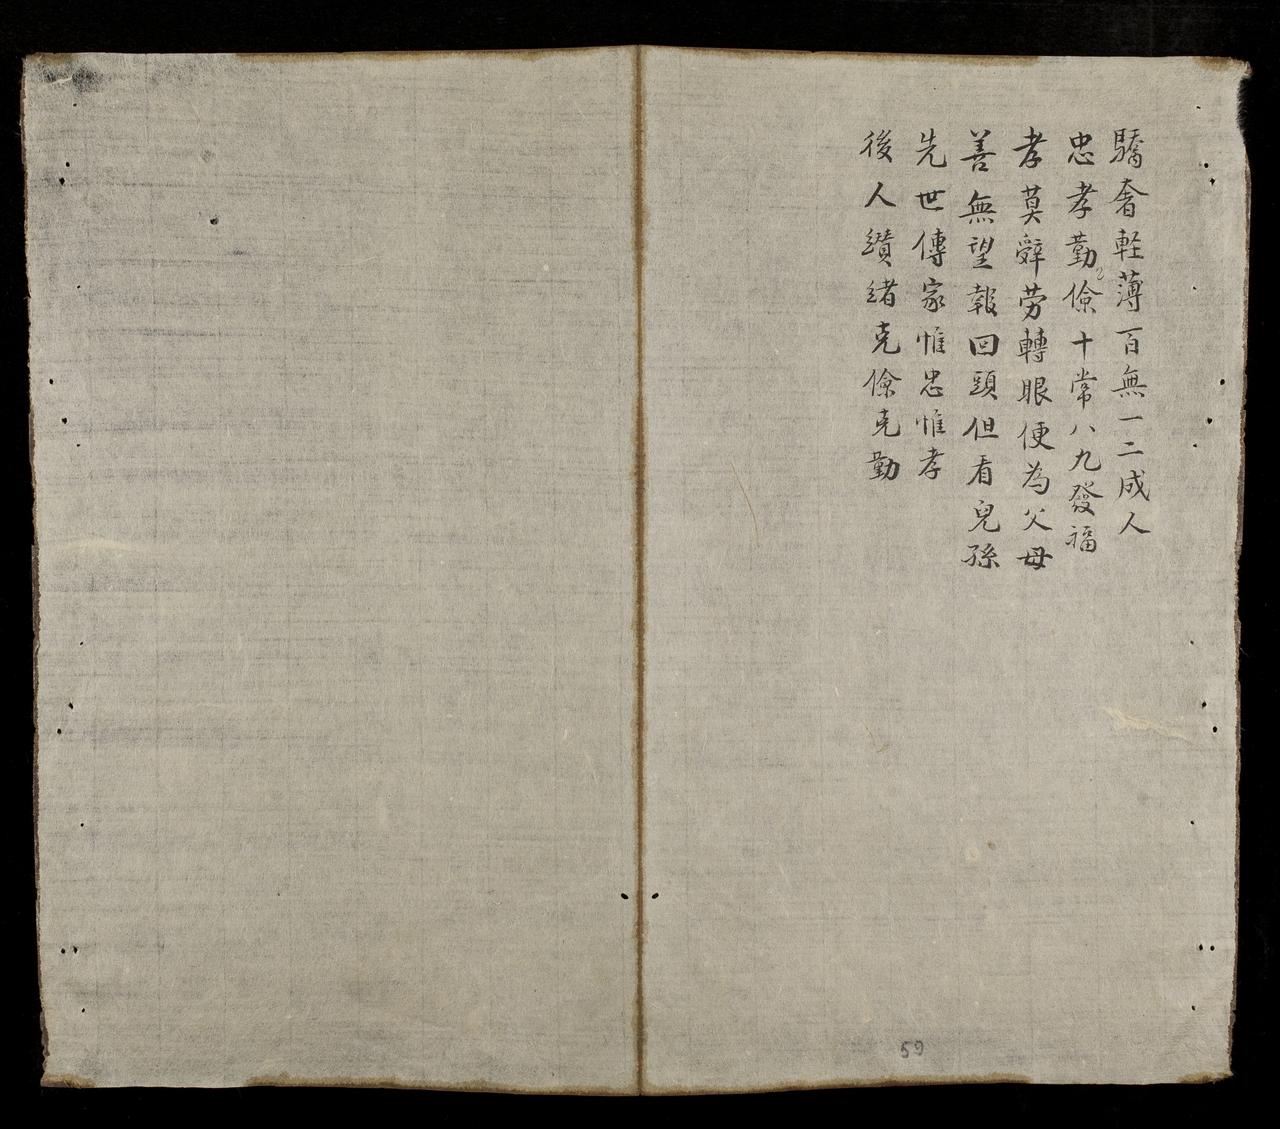 驕奢軽薄百無一二成人
忠孝勤儉十常八九發福
孝莫辤劳轉眼便為父母
善無望報回頭但看兒孫
先世傳家惟忠惟孝
後人纘緒克儉克勤
59